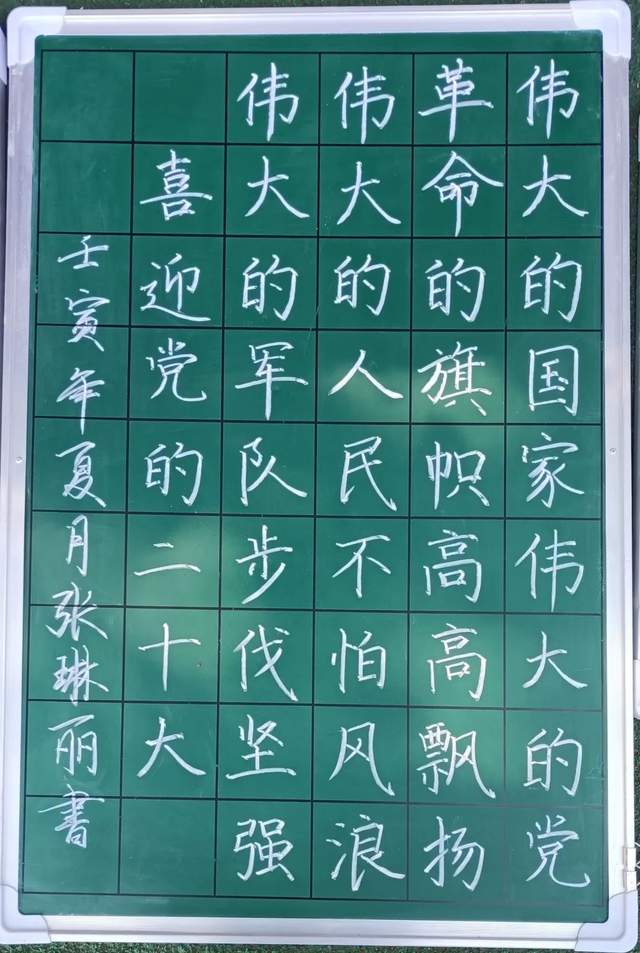 伟大的国家伟大的党
革命的旗帜高高飘扬
伟大的人民不怕风浪
伟大的军队步伐坚强
喜迎党的二十大
壬寅年夏月张琳丽書